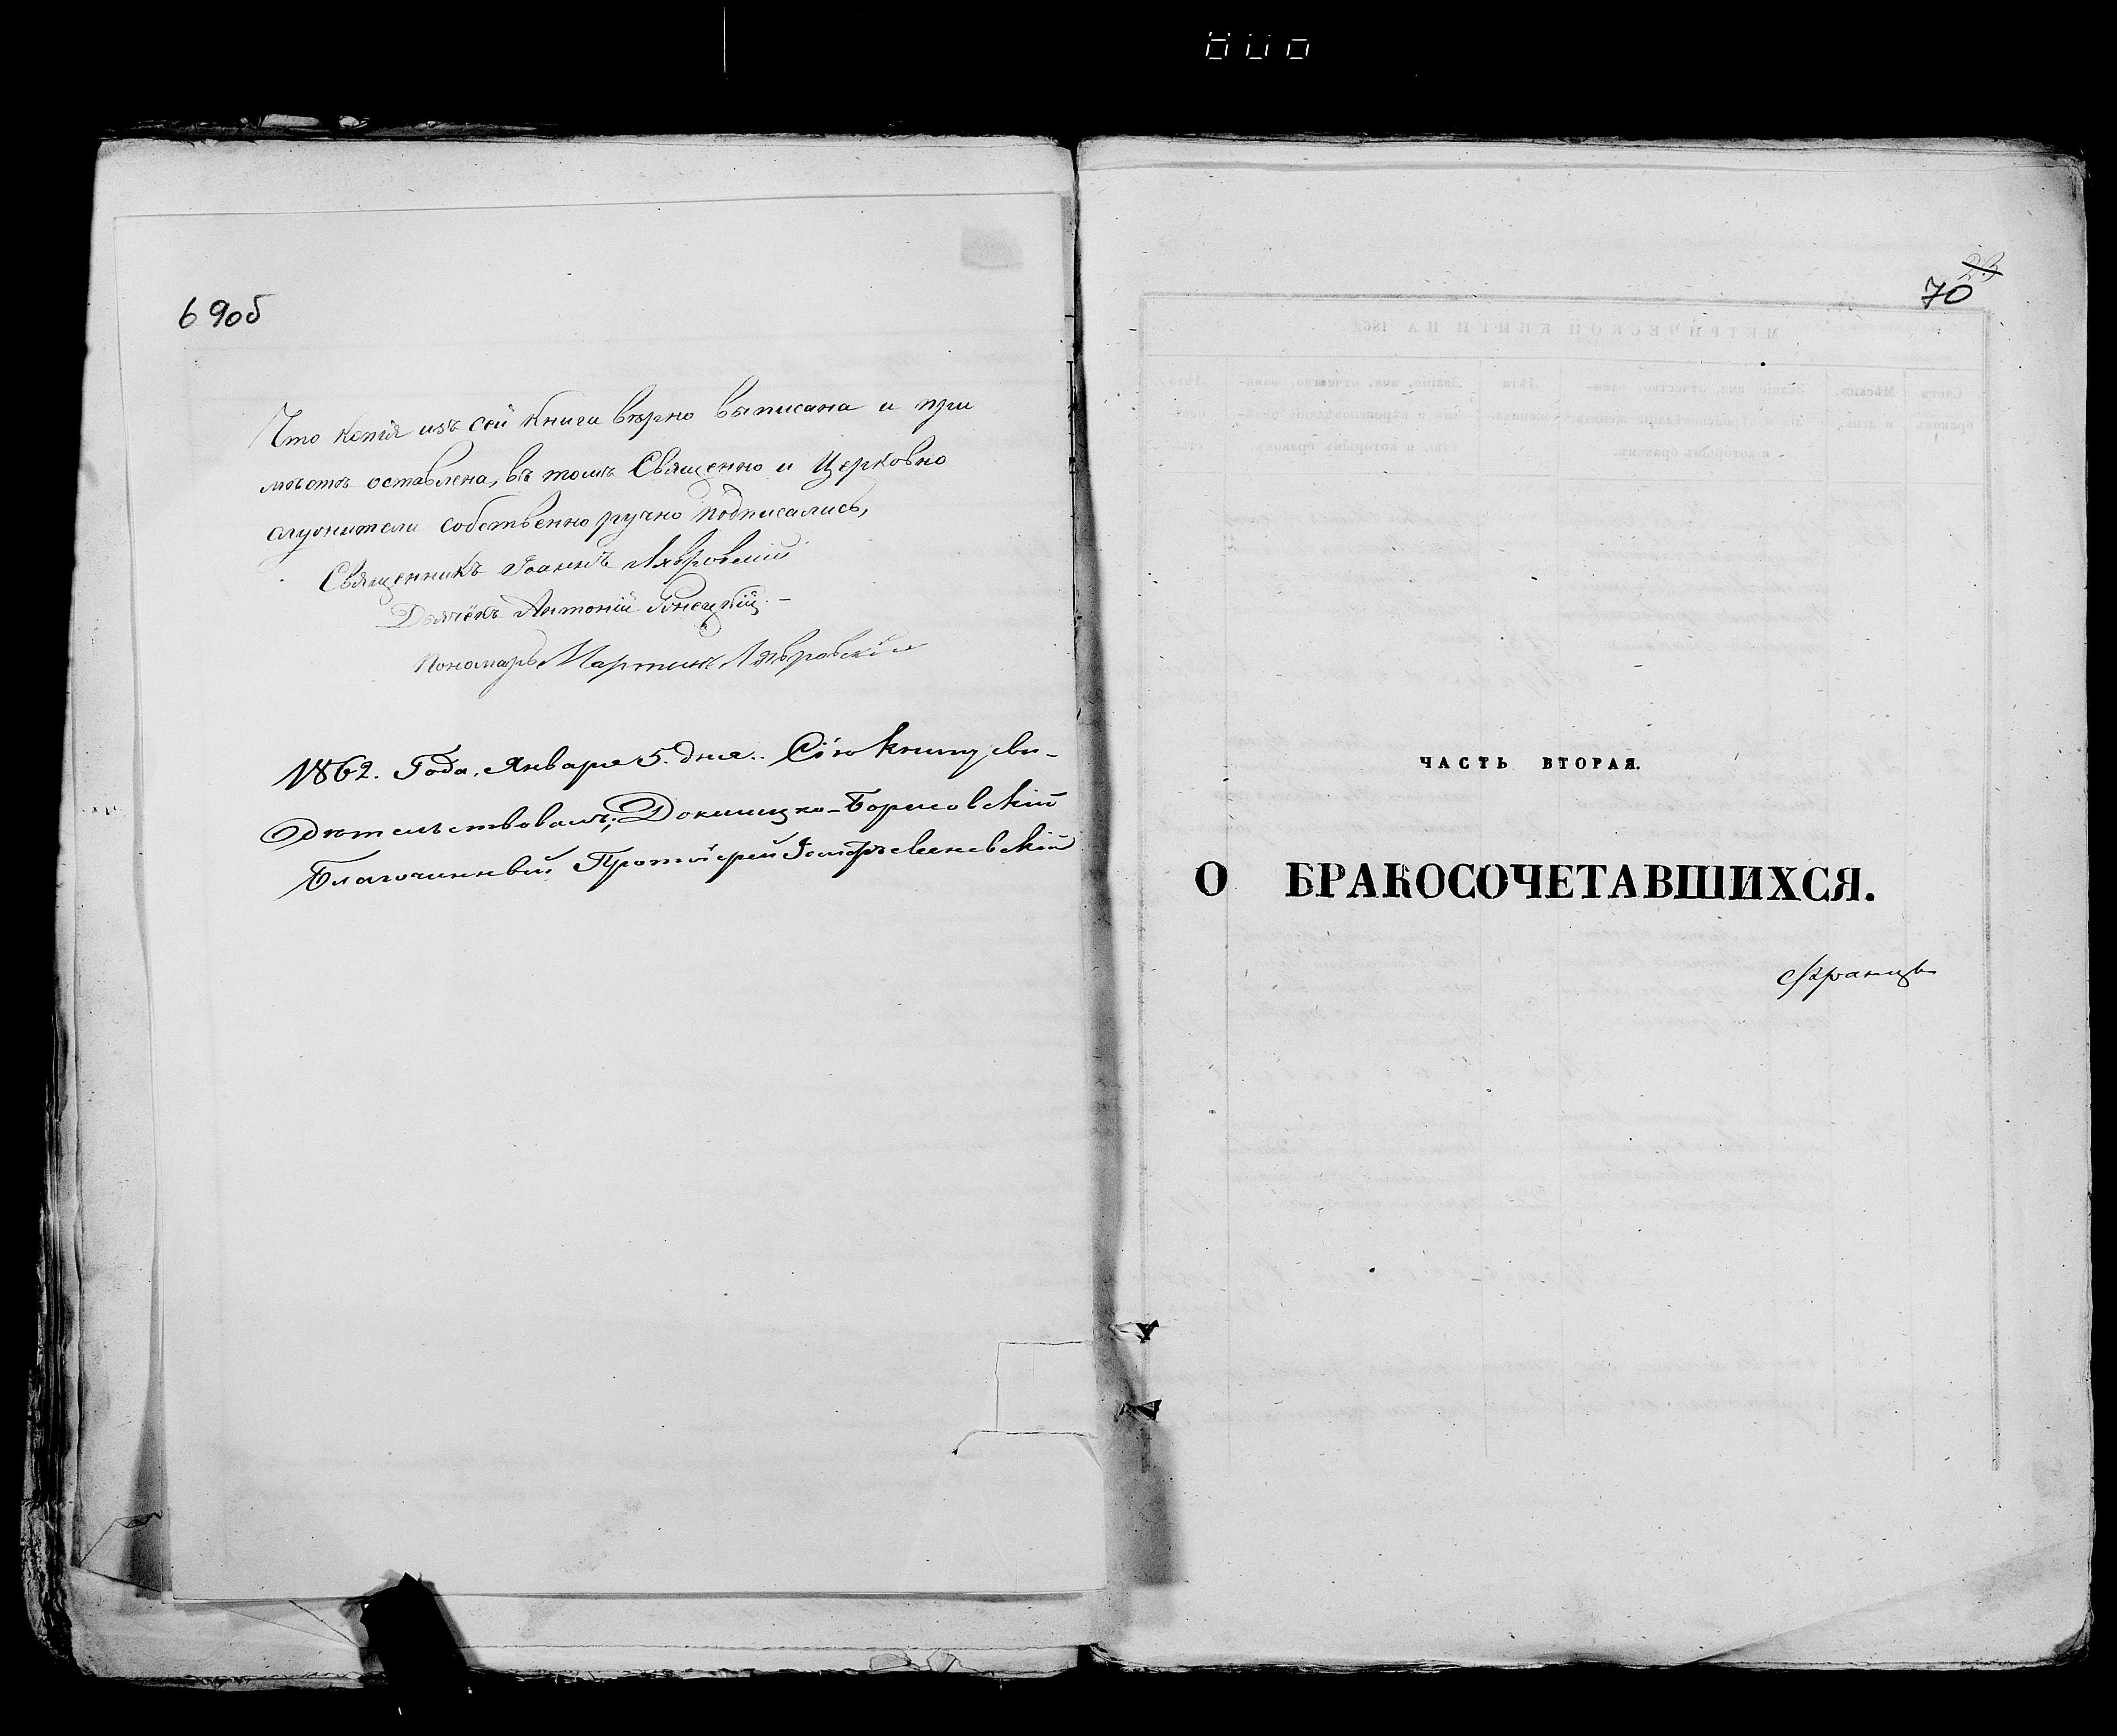 69об
Что копія изъ сей книги вѣрно выписана и при
мѣстѣ оставлена, въ томъ Священно и Церковно
служители собственно ручно подписались,
Священникъ Іоаннъ
Дьячекъ Антоній
Пономарь Мартинъ
1862. Года. Января 5. дня. Сію книгу сви-
дѣтельствовалъ; Докшицко-Борисовскій
Благочинный Протоіерей
70
ЧАСТЬ ВТОРАЯ.
О БРАКОСОЧЕТАВШИХСЯ.